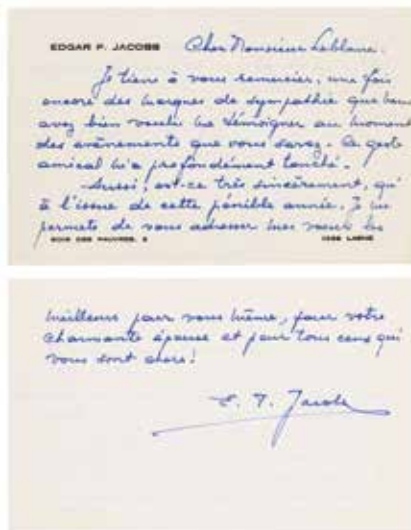 EDGAR P. JACOBS Cher Monsieur Leblanc.
Je tiens à vous remercier, une fois
encore des marques de sympathie que vous
avez bien voulu me témoigner au moment
des événements que vous savez. Ce geste
amical m'a profondément touché.
Aussi, est-ce très sincèrement, qu'
à l'issue de cette pénible année, je me
permets de vous adresser mes vœux les
BOIS DES PAUVRES, 1328 LASNE
meilleurs pour vous même, pour votre
charmante épouse et pour tous ceux qui
vous sont chers!
E. P. Jacobs